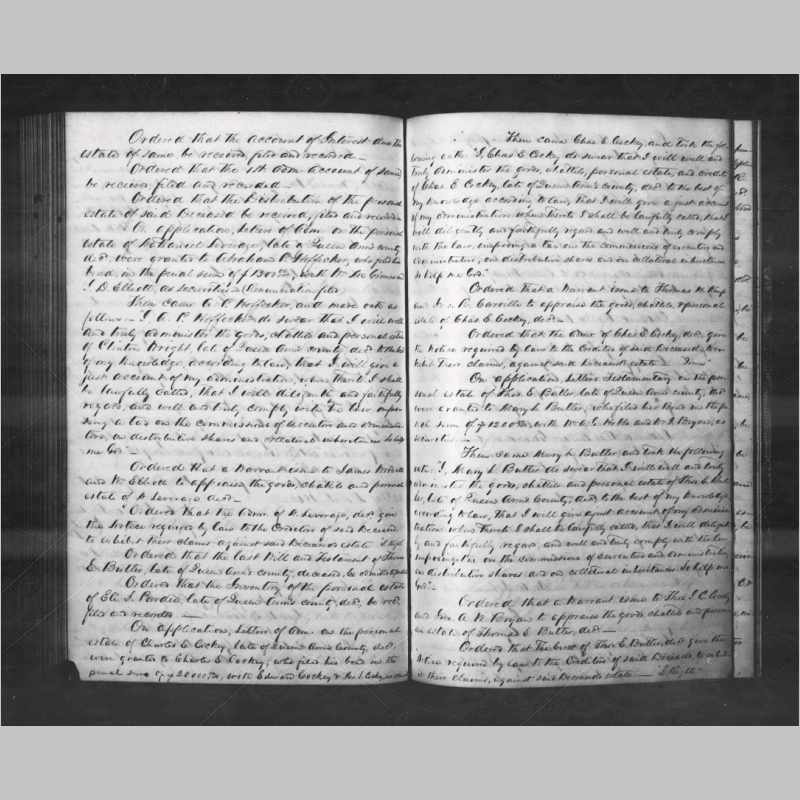 Ordered that the account of Interest due the
estate of same be received, filed and recorded—
Ordered that the 1st Adm. account of said
be received filed and recorded—
Ordered that the Distribution of the personal
estate of said Deceased be received, filed and recorded
On application, letters of Adm. on the personal
estate of Nathaniel Leverage, late of Queen Ann's county
decd. were granted to Abraham P. who filed his
bond, in the penal sum of $1200.00, with Wm.
J. D. Elliott as securities—
Then came A. P. and made oath as
follows— I A. P. do swear that I will well
and truly administer the goods, chattels and personal estate
of Clinton Wright, late of Queen Ann's county decd. to the best
of my knowledge, according to law, that I will give a
just account of my administration, when thereto I shall
be lawfully called, that I will diligently and faithfully
regard, and well and truly comply with the law impo-
sing a tax on the commissions of executors and administra-
tors, on distributive shares and collateral inheritances So help
me God"
Ordered that a Warrant issue to James
and W. Elliott to appraise the goods, chattels and personal
estate of N. Leverage decd.—
Ordered that the Admr. of N. Leverage, decd. give
the Notice required by law to the Creditors of said Deceased
to exhibit their claims against said Deceaseds estate
Ordered that the last Will and Testament of Thomas
E. Butler, late of Queen Anns county, deceased, be admitted
Ordered that the Inventory of the personal estate
of Eli S. Pardee, late of Queen Anns county, decd. be recd.
filed and recorded—
On application, letters of Adm. on the personal
estate of Charles E. Cockey, late of Queen Ann's County, decd.
were granted to Charles E. Cockey, who filed his bond in the
penal sum of $20000.00, with Edward Cockey &
Then came Chas E. Cockey, and took the fol
lowing oath "I, Chas E. Cockey do swear that I will well and
truly administer the goods, chattels, personal estate, and credits
of Chas E. Cockey, late of Queen Ann's county, decd. to the best of
my knowledge according to law, that I will give a just account
of my administration, when thereto I shall be lawfully called, that I
will diligently and faithfully regard and well and truly comply
with the law, imposing a tax on the commissions of executors and
administrators, on distributive shares and on collateral inheritances
So help me God"
Ordered that a Warrant issue to Thomas H.
and to appraise the goods, chattels & personal
estate of Chas E. Cockey, decd.—
Ordered that the Admr. of Chas E. Cockey, decd. give
the Notice required by law to the Creditors of said Deceased to ex
hibit their claims, against said Deceaseds estate—
On application, letters Testamentary on the per
sonal estate of Thos. E. Butler, late of Queen Ann's county, decd.
were granted to Mary L. Butler, who filed her bond in the pe
nal sum of $1200.00, with W. E. and W. J. Bryan, as
securities—
Then came Mary L. Butler, and took the following
oath "I, Mary L. Butler do swear that I will well and truly
administer the goods, chattels and personal estate of Thos. E. But
ler, late of Queen Anns County, decd. to the best of my knowledge
according to law, that I will give a just account of my adminis
tration when thereto I shall be lawfully called, that I will diligent
ly and faithfully, regard, and well and truly comply with the law
imposing a tax on the commissions of executors and administrators
on distributive shares and on collateral inheritances. So help me
God"—
Ordered that a Warrant issue to Thos. J. C.
and A. W. Bryan to appraise the goods chattels and person
al estate of Thomas E. Butler, decd.—
Ordered that the Exct. of Thos. E. Butler, decd. give the
Notice required by law to the Creditors of said Deceased, to exhib
it their claims, against said Deceaseds estate—